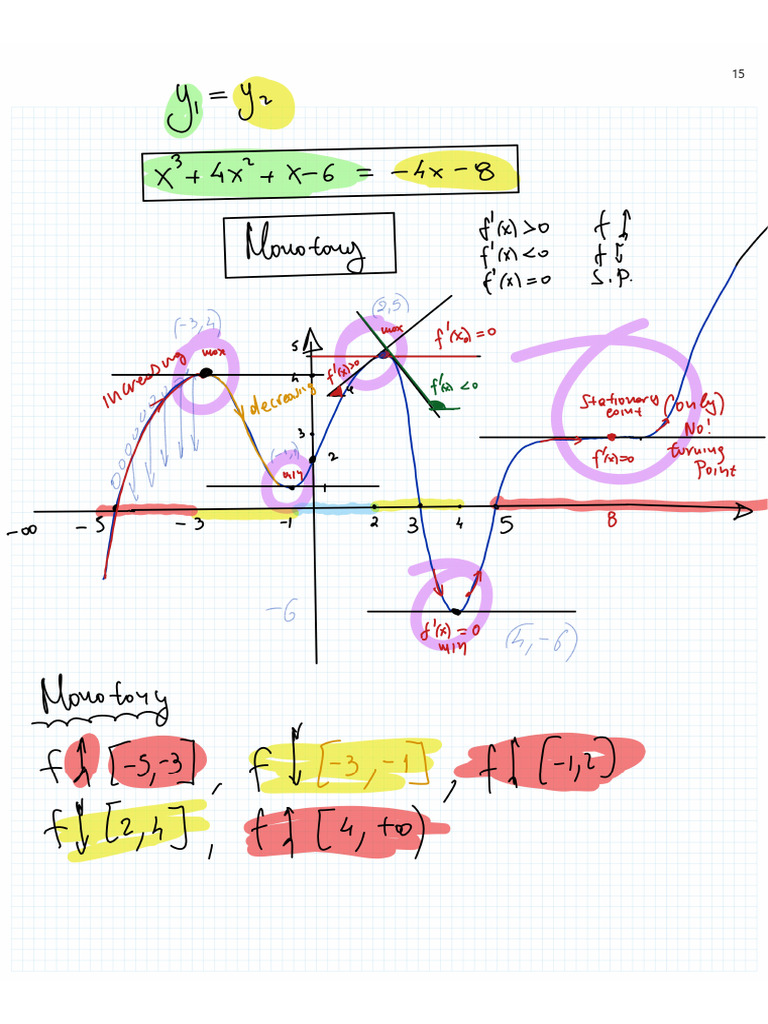 15
y₁ = y₂
x³ + 4x² + x - 6 = -4x - 8
Monotony
f'(x) > 0 f ↑
f'(x) < 0 f ↓
f'(x) = 0 S.P.
(-3, 4)
max
increasing
decreasing
(-1, 1)
min
(2, 5)
max
f'(x₀) = 0
f'(x) > 0
f'(x) < 0
5
4
3
2
1
Stationary
point
(only)
No!
turning
point
f'(x) = 0
-∞ -5 -3 -1 2 3 4 5 8
-6
f'(x) = 0
min
(4, -6)
Monotony
f ↑ [-5, -3], f ↓ [-3, -1], f ↑ [-1, 2)
f ↓ [2, 4], f ↑ [4, +∞)